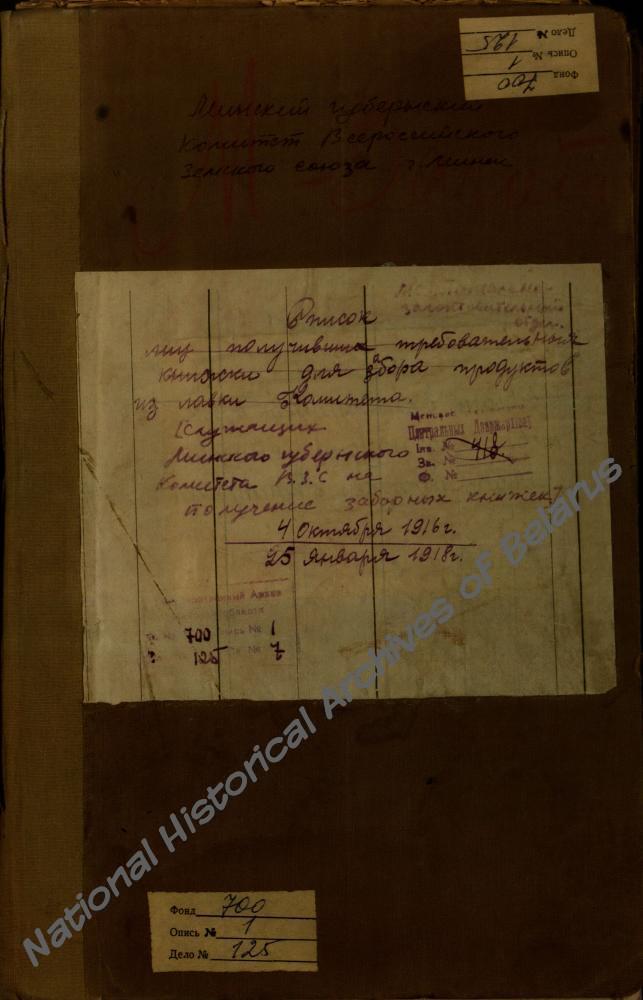 Фонд 700
Опись № 1
Дело № 125
Минский губернский
Комитет Всероссийского
Земского союза г. Минск
Список
лиц получивших требовательныя
книжки для забора продуктов
из лавки Комитета.
(Служащих
Минского губернского
Комитета В.З.С на
получение заборных книжек)
4 Октября 1916 г.
25 Января 1918 г.
Центральных
Инв. № 418
Зв. №
Ф. №
700 Опись № 1
125 № 7
National Historical Archives of Belarus
Фонд 700
Опись № 1
Дело № 125